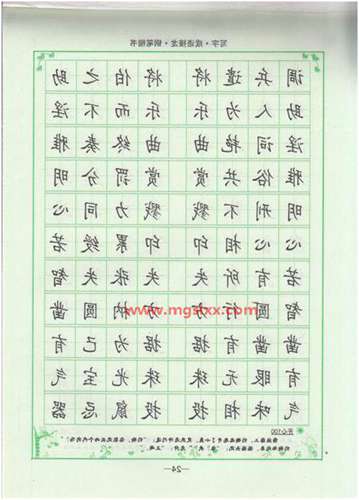 写字·成语接龙·钢笔楷书
调兵遣将 将伯之助
助人为乐 乐而不淫
淫词艳曲 曲终奏雅
雅俗共赏 赏罚分明
明刑不戮 戮力同心
心心相印 印累绶若
若有所失 失张失智
智圆行方 方枘圆凿
www.mgsfxx.com
凿凿有据 据为己有
有眼无珠 珠光宝气
气味相投 投鼠忌器
开心100
—24—